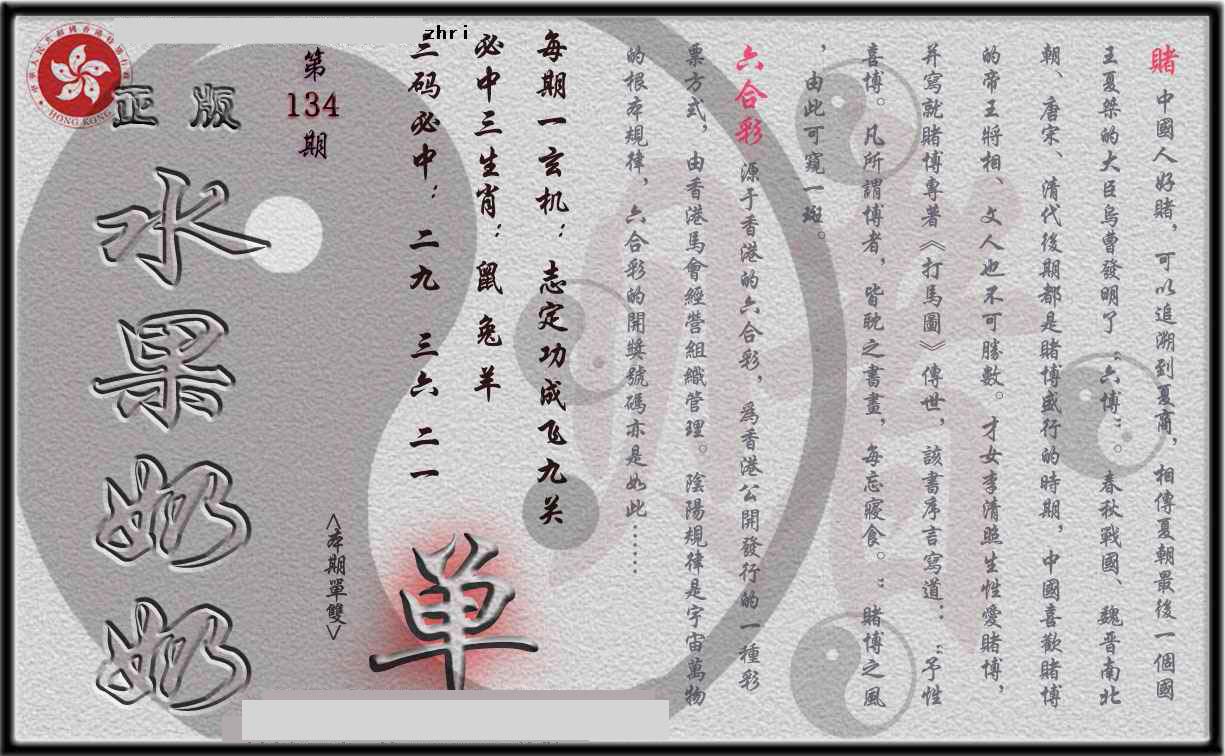 賭 中國人好賭，可以追溯到夏商，相傳夏朝最後一個國
王夏桀的大臣烏曹發明了“六博”。春秋戰國、魏晋南北
朝、唐宋、清代後期都是賭博盛行的時期，中國喜歡賭博
的帝王將相、文人也不可勝數。才女李清照生性愛賭博，
并寫就賭博專著《打馬圖》傳世，該書序言寫道：：“予性
喜博。凡所謂博者，皆耽之書畫，每忘寢食。：賭博之風
，由此可窺一斑。
六合彩 源于香港的六合彩，爲香港公開發行的一種彩
票方式，由香港馬會經營組織管理。陰陽規律是宇宙萬物
的根本規律，六合彩的開獎號碼亦是如此……
每期一玄机：志定功成飞九关
必中三生肖：鼠 兔 羊
三码必中：二九 三六 二一
zhri
第
134
期
正版
水果奶奶
<本期單雙>
单
HONG KONG